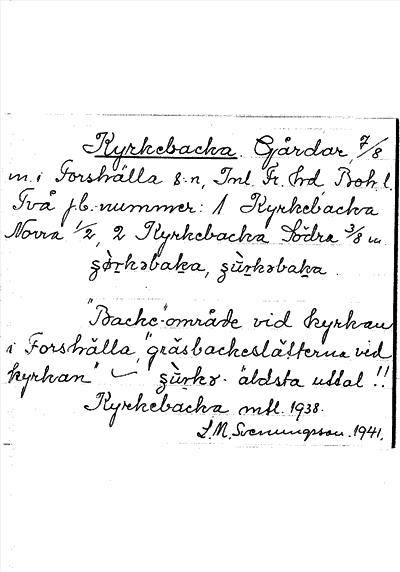 Kyrkebacka. Gårdar, 7/8
m. i Forshälla s:n, Inl. Fr. hd Boh. l.
Två jb.-nummer: 1 Kyrkebacka
Norra 1/2, 2 Kyrkebacka Södra 3/8 m.

"Backe"-område vid kyrkan
i Forshälla, "gräsbackeslätterna vid
kyrkan" äldsta uttal !!
Kyrkebacka mtl. 1938.
L.M. Svenungsson. 1941.